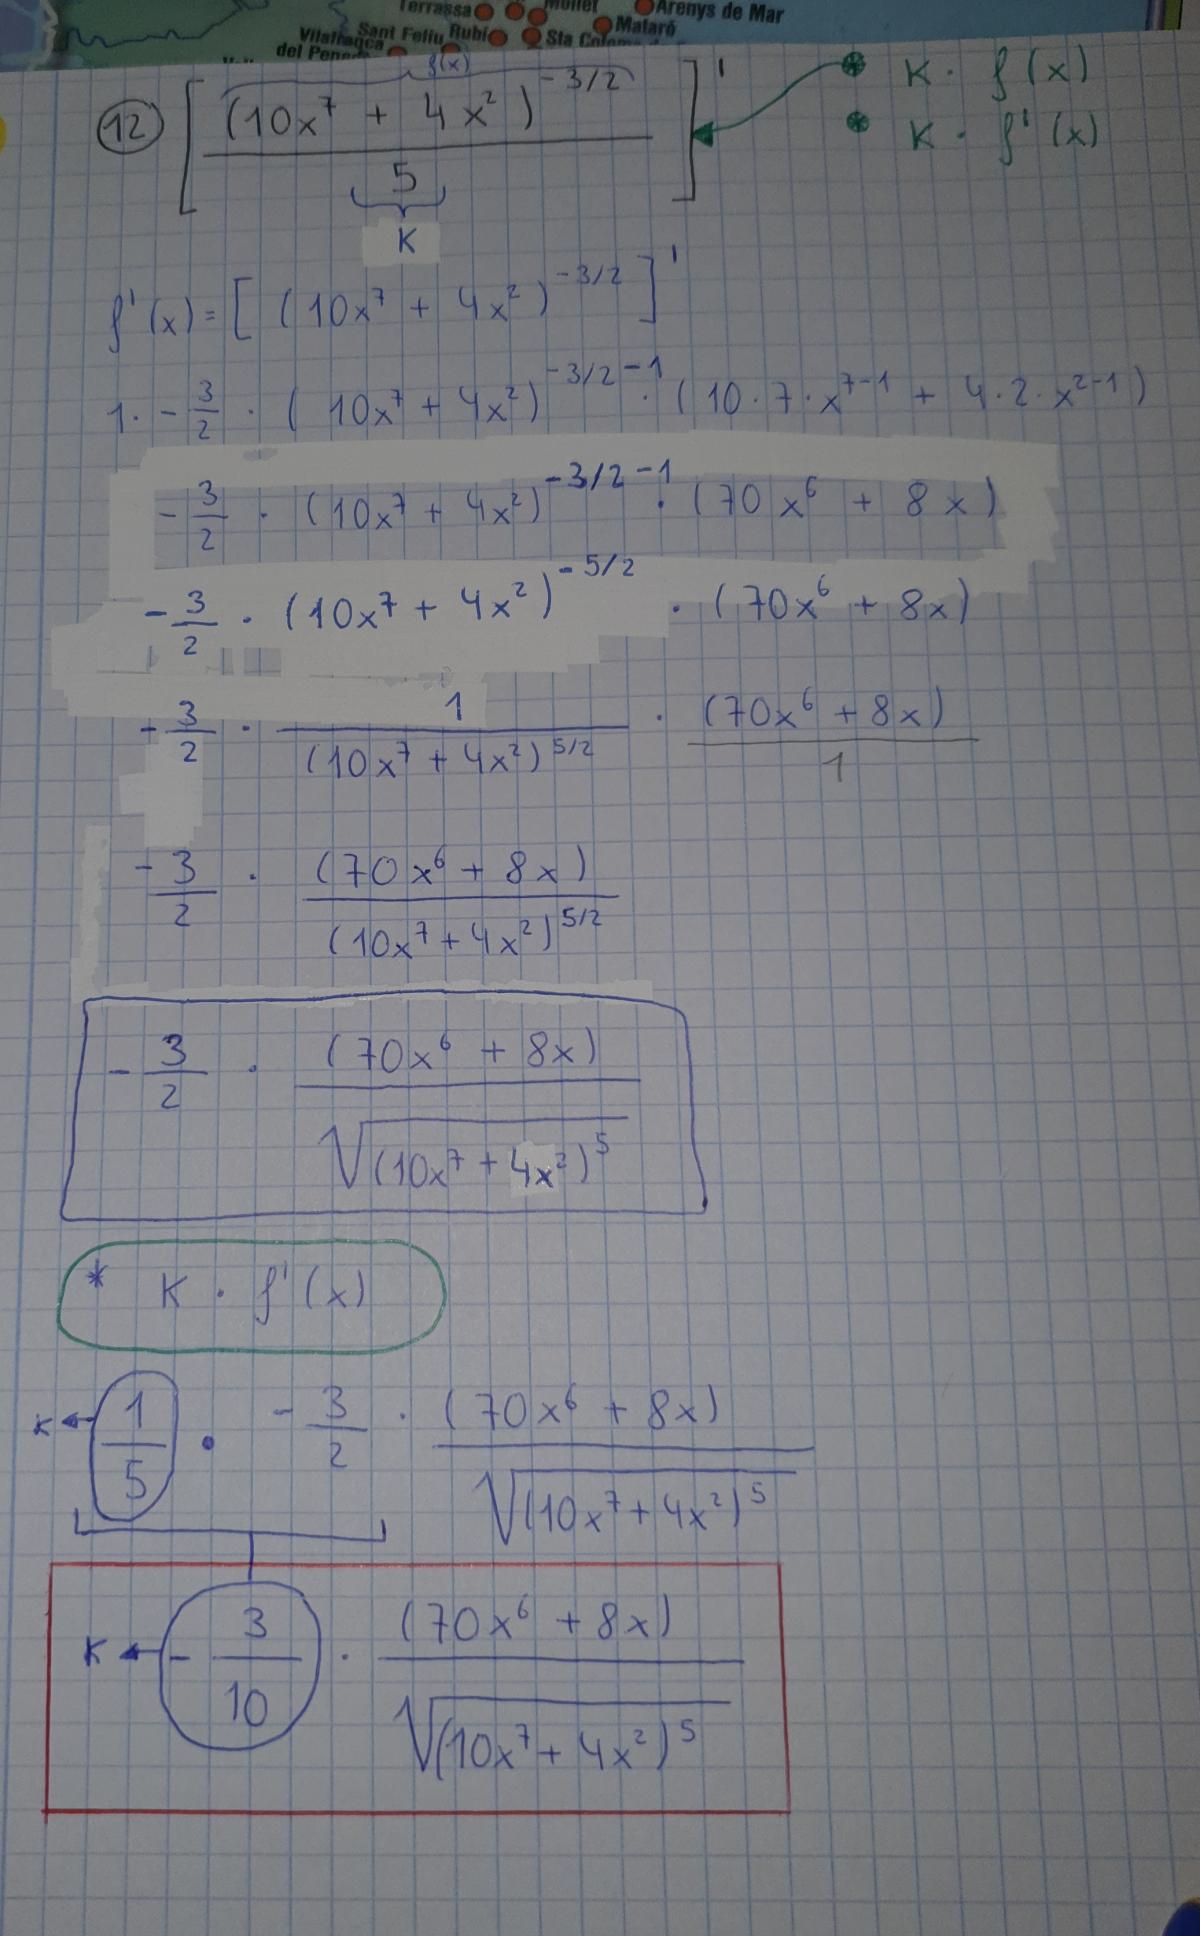 Terrassa Mollet Arenys de Mar
Sant Feliu Rubí Mataró
Vilafranca
del Pened Sta Coloma de
f(x)
12 [ (10x⁷ + 4x²)^-3/2 / 5 ]' K · f(x)
K · f'(x)
K
f'(x) = [ (10x⁷ + 4x²)^-3/2 ]'
1 · - 3/2 · (10x⁷ + 4x²)^-3/2-1 · (10 · 7 · x^7-1 + 4 · 2 · x^2-1)
- 3/2 · (10x⁷ + 4x²)^-3/2-1 · (70x⁶ + 8x)
- 3/2 · (10x⁷ + 4x²)^-5/2 · (70x⁶ + 8x)
- 3/2 · 1 / (10x⁷ + 4x²)^5/2 · (70x⁶ + 8x) / 1
- 3/2 · (70x⁶ + 8x) / (10x⁷ + 4x²)^5/2
- 3/2 · (70x⁶ + 8x) / √(10x⁷ + 4x²)⁵
* K · f'(x)
K ← 1/5 · - 3/2 · (70x⁶ + 8x) / √(10x⁷ + 4x²)⁵
K ← - 3/10 · (70x⁶ + 8x) / √(10x⁷ + 4x²)⁵